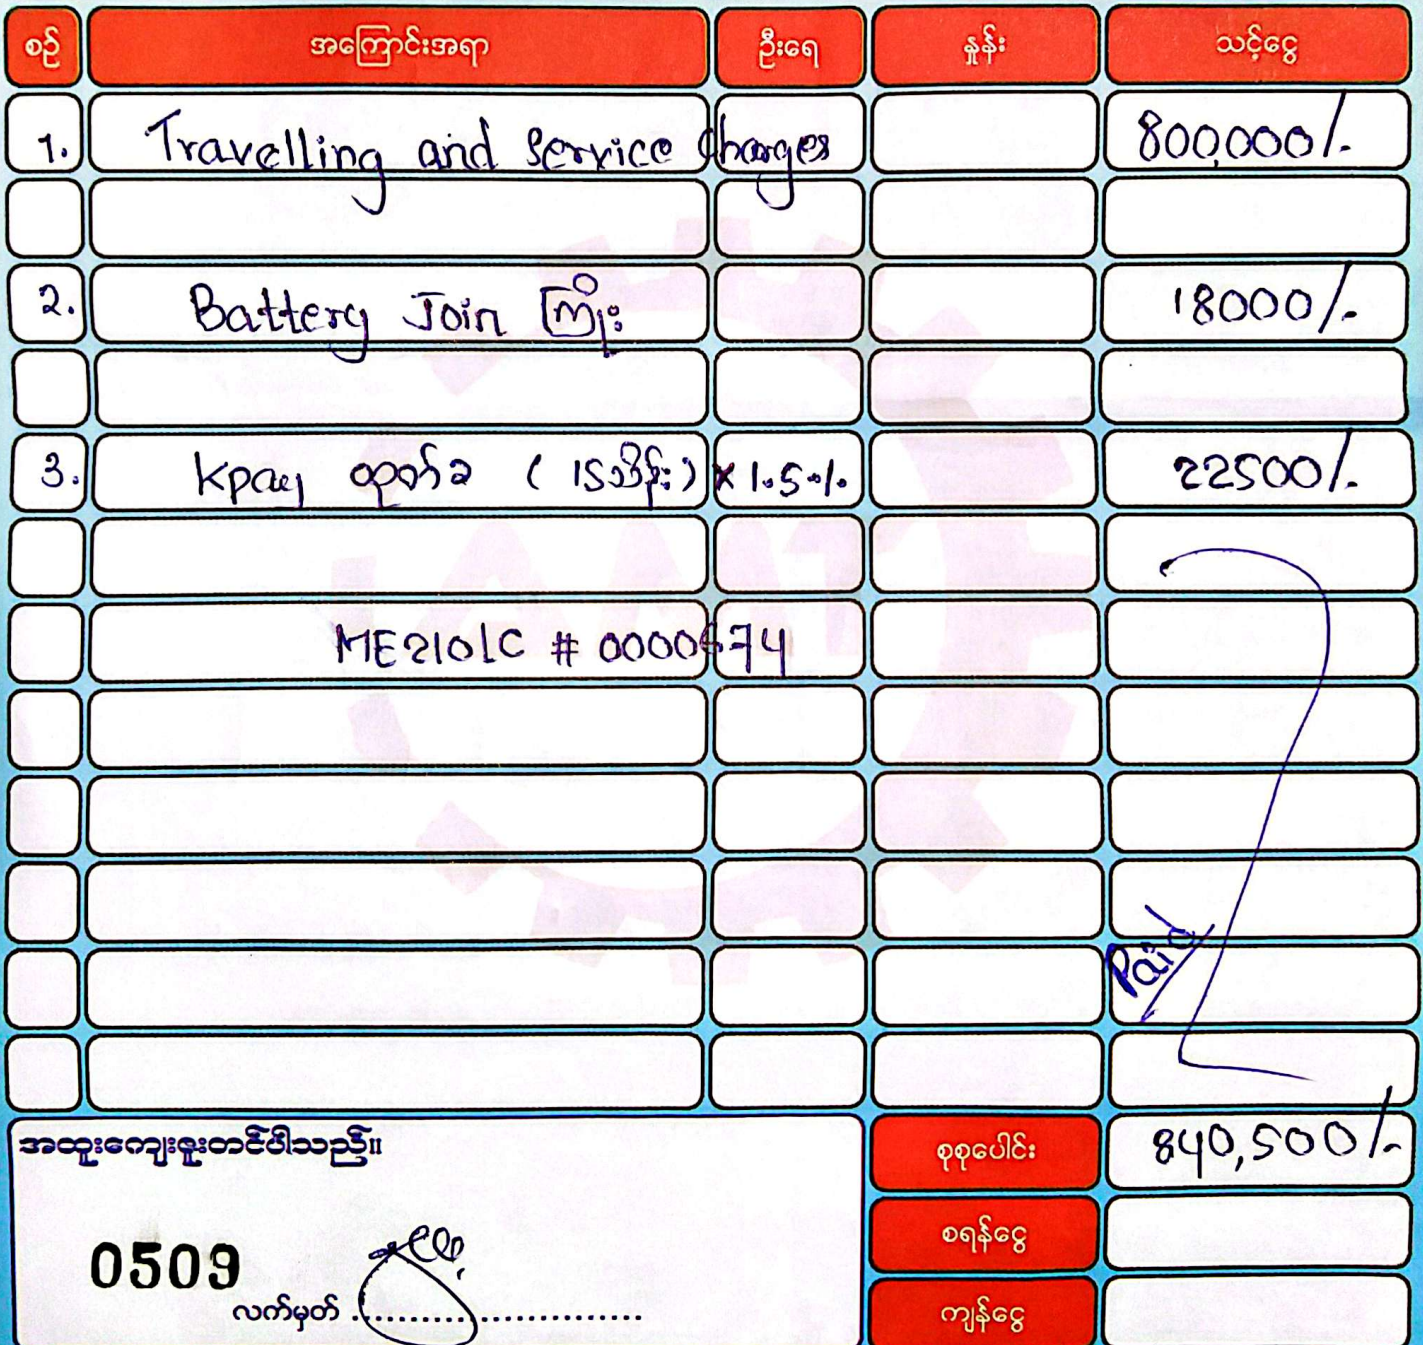 စဉ် အကြောင်းအရာ ဦးရေ နှုန်း သင့်ငွေ
1. Travelling and Service Charges 800,000/-
2. Battery Join ကြိုး 18000/-
3. Kpay ထုတ်ခ ( 15သိန်း ) × 1.5% 22500/-
ME2101C # 0000674
Paid
အထူးကျေးဇူးတင်ပါသည်။
စုစုပေါင်း 840,500/-
စရန်ငွေ
0509
လက်မှတ်
ကျန်ငွေ
AMT